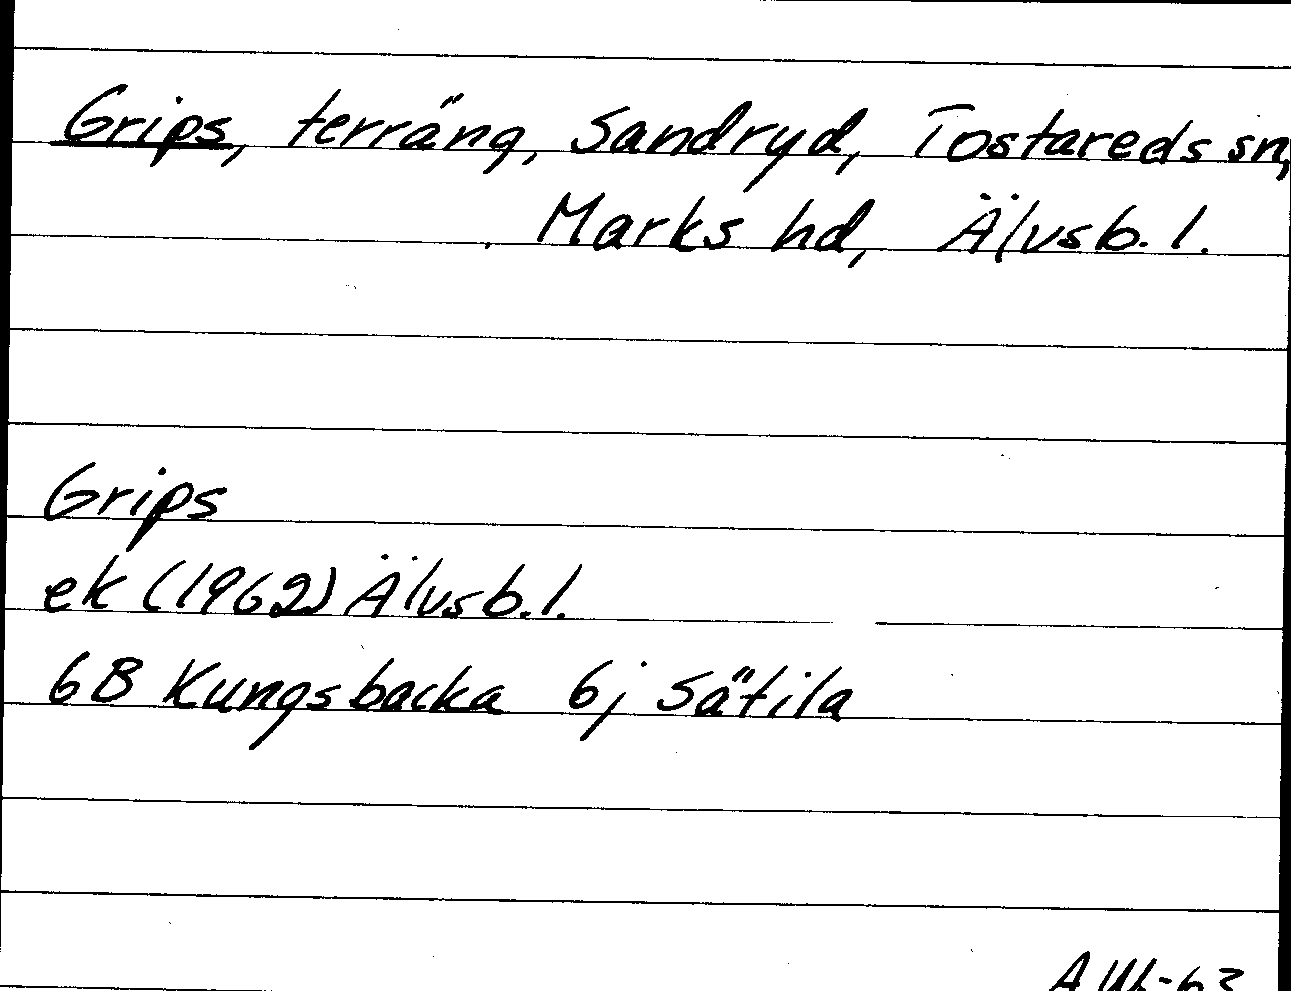 Grips, terräng, Sandryd, Tostareds sn,
Marks hd, Älvsb. l.
Grips
ek (1962) Älvsb. l.
6B Kungsbacka 6j Sätila